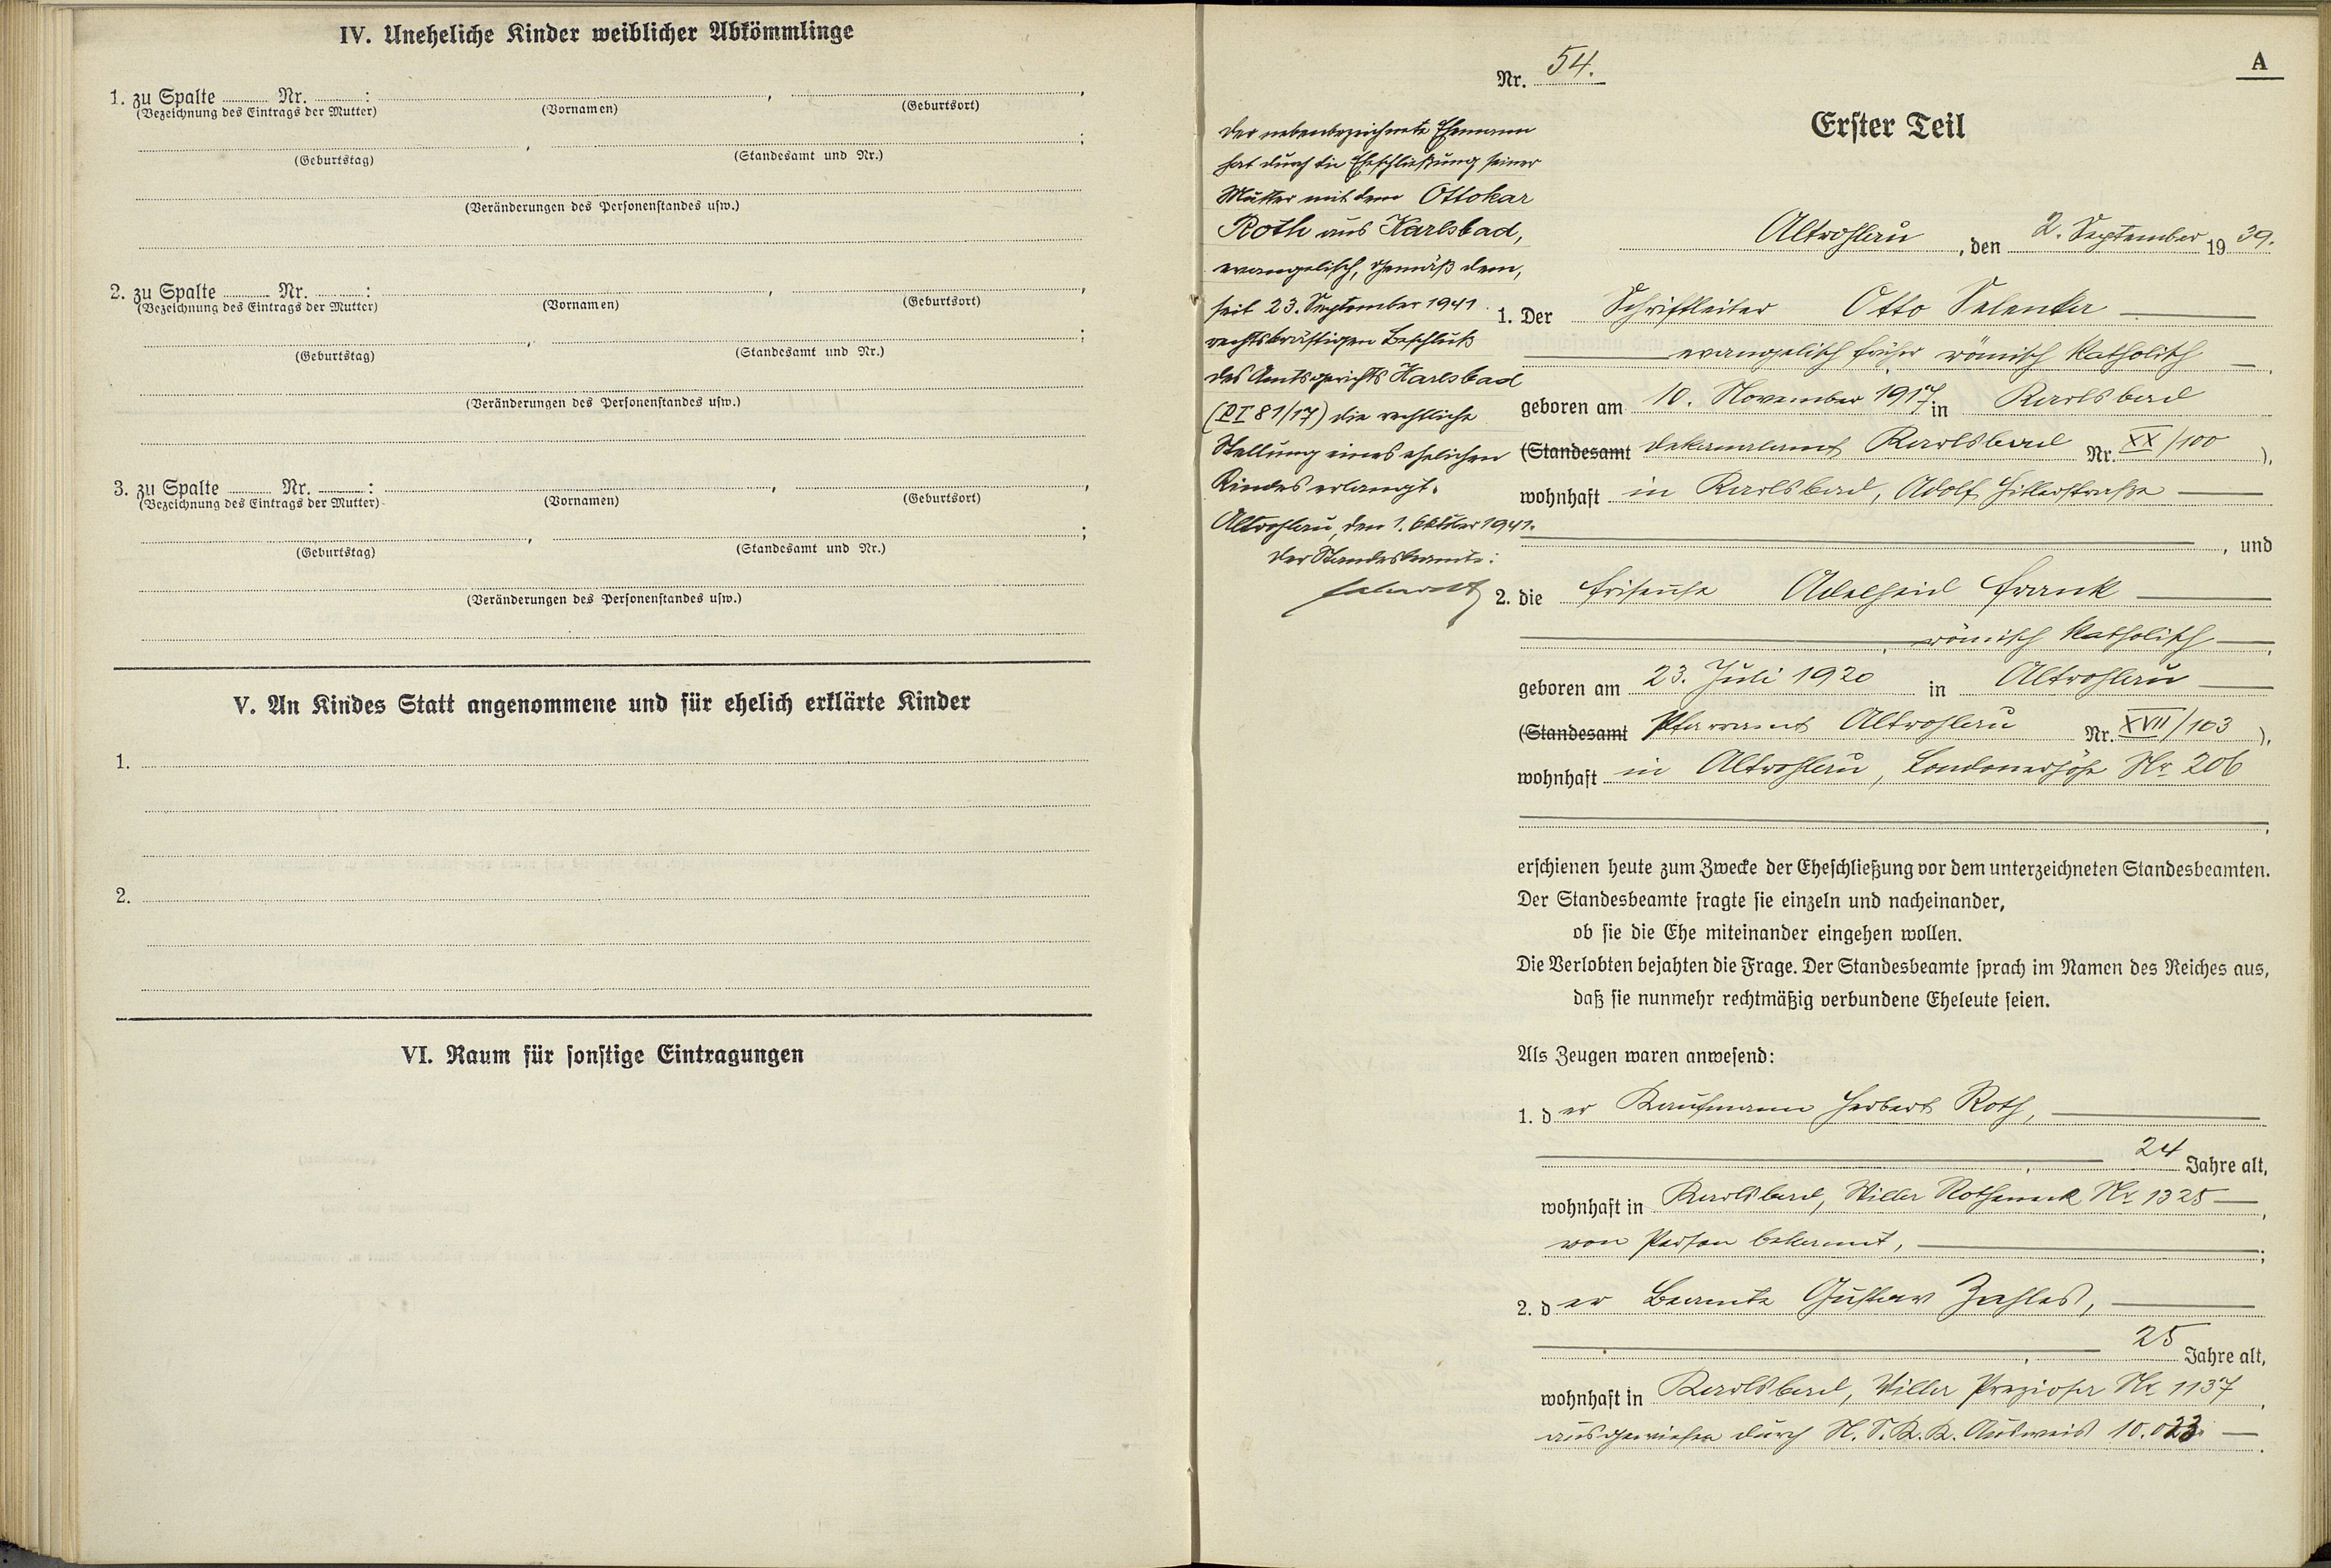 IV. Uneheliche Kinder weiblicher Abkömmlinge
1. zu Spalte Nr. : , ,
(Bezeichnung des Eintrags der Mutter) (Vornamen) (Geburtsort)
, ;
(Geburtstag) (Standesamt und Nr.)
(Veränderungen des Personenstandes usw.)
2. zu Spalte Nr. : , ,
(Bezeichnung des Eintrags der Mutter) (Vornamen) (Geburtsort)
, ;
(Geburtstag) (Standesamt und Nr.)
(Veränderungen des Personenstandes usw.)
3. zu Spalte Nr. : , ,
(Bezeichnung des Eintrags der Mutter) (Vornamen) (Geburtsort)
, ;
(Geburtstag) (Standesamt und Nr.)
(Veränderungen des Personenstandes usw.)
V. An Kindes Statt angenommene und für ehelich erklärte Kinder
1.
2.
VI. Raum für sonstige Eintragungen
A
Nr. 54.
Der nebenbezeichnete Ehemann
hat durch die Eheschließung seiner
Mutter mit dem Ottokar
Roth aus Karlsbad,
evangelisch, gemäß dem,
seit 23. September 1941
rechtskräftigen Beschluß
des Amtsgerichts Karlsbad
81/17) die rechtliche
Stellung eines ehelichen
Kindes erlangt.
Altrohlau, den 1. Oktober 1941.
Der Standesbeamte:
Erster Teil
Altrohlau, den 2. September 1939.
1. Der Schriftleiter Otto Selenka
evangelisch früher römisch katholisch,
geboren am 10. November 1917 in Karlsbad
(Standesamt Dekanalamt Karlsbad Nr. XX/100),
wohnhaft in Karlsbad, Adolf Hitlerstraße
, und
2. die Friseuse Adelheid Frank
, römisch katholisch,
geboren am 23. Juli 1920 in Altrohlau
(Standesamt Pfarramt Altrohlau Nr. XVII/103),
wohnhaft in Altrohlau, Londonerhöhe Nr 206
,
erschienen heute zum Zwecke der Eheschließung vor dem unterzeichneten Standesbeamten.
Der Standesbeamte fragte sie einzeln und nacheinander,
ob sie die Ehe miteinander eingehen wollen.
Die Verlobten bejahten die Frage. Der Standesbeamte sprach im Namen des Reiches aus,
daß sie nunmehr rechtmäßig verbundene Eheleute seien.
Als Zeugen waren anwesend:
1. der Kaufmann Herbert Roth,
, 24 Jahre alt,
wohnhaft in Karlsbad, Villa Rotheneck Nr 1325,
von Person bekannt, ;
2. der Beamte Gustav
, 25 Jahre alt,
wohnhaft in Karlsbad, Villa Preziosa Nr 1137,
ausgewiesen durch N.S.K.K. Ausweis 10.023.